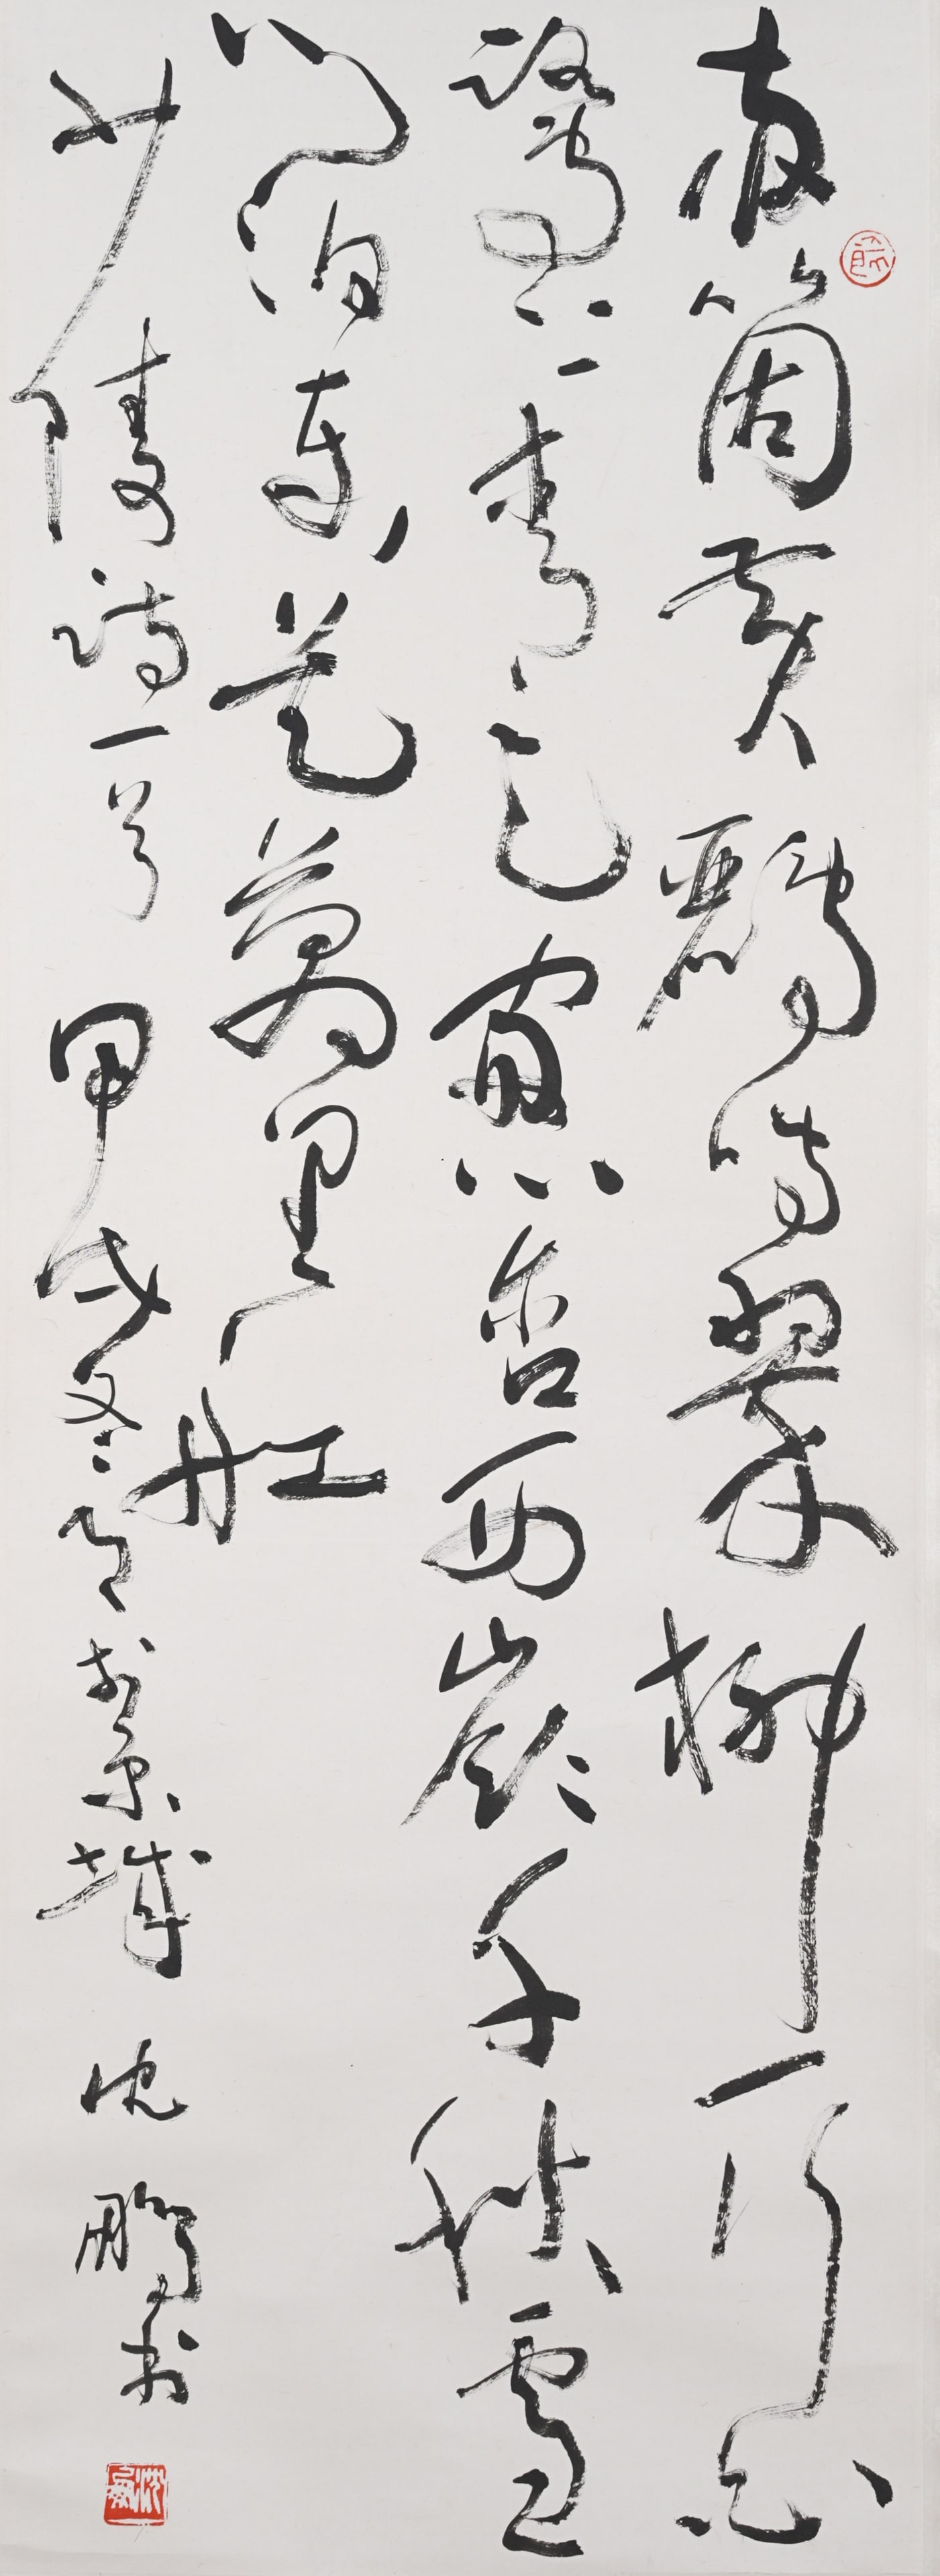 兩箇黃鸝鳴翠柳一行白
鷺上青天窗含西嶺千秋雪
門泊東吳萬里船
少陵詩一首 甲戌冬於京城 沈鵬書
沈鵬